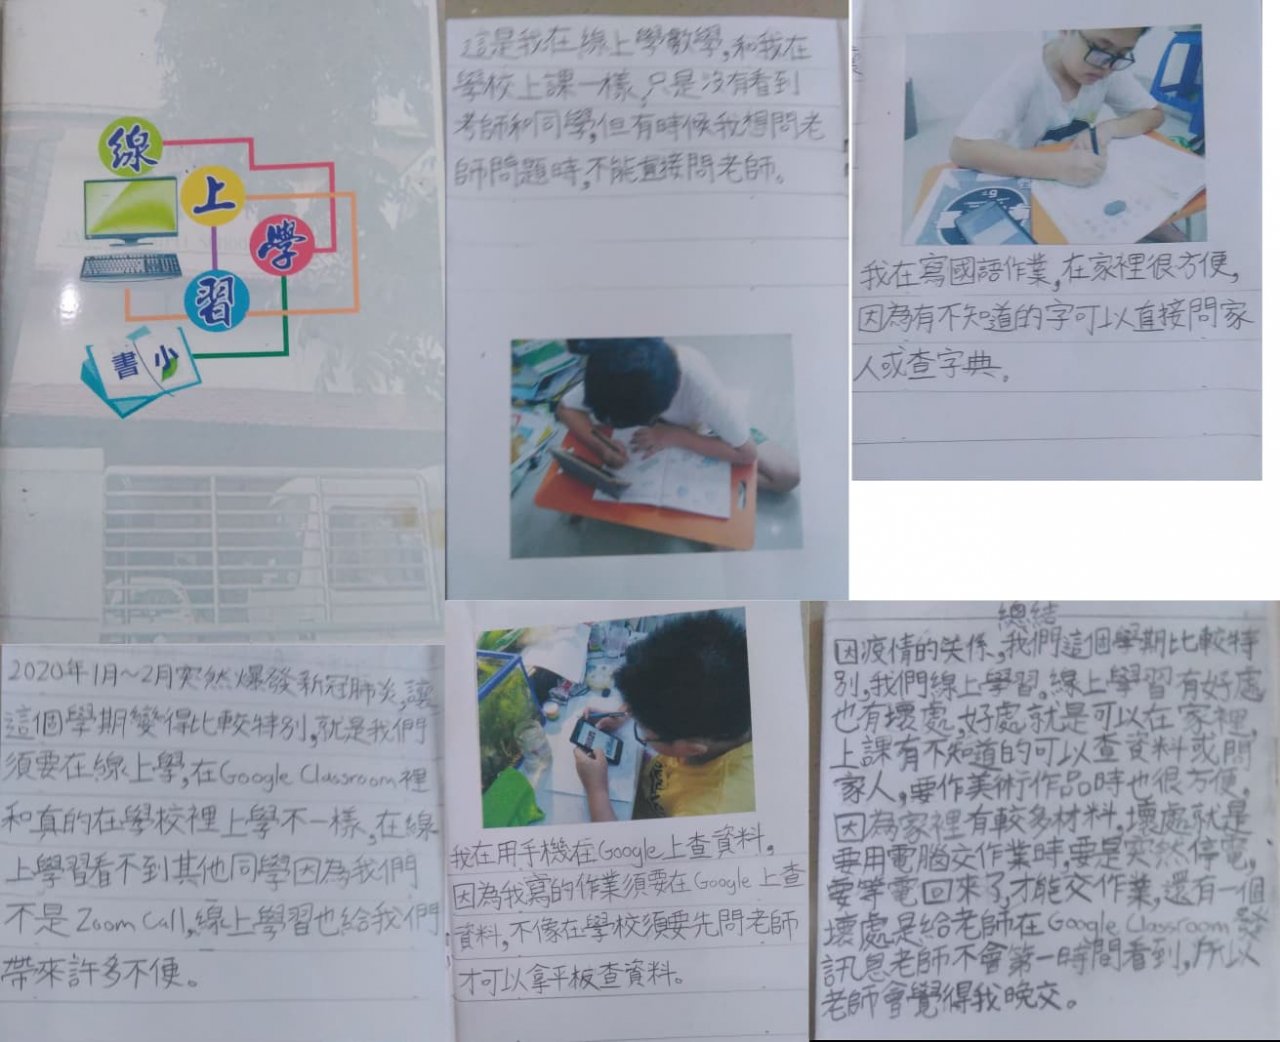 線
上
學
習
小
書
2020年1月~2月突然爆發新冠肺炎,讓
這個學期變得比較特別,就是我們
須要在線上學,在Google Classroom裡
和真的在學校裡上學不一樣,在線
上學習看不到其他同學因為我們
不是Zoom Call,線上學習也給我們
帶來許多不便。
這是我在線上學數學,和我在
學校上課一樣,只是沒有看到
老師和同學,但有時候我想問老
師問題時,不能直接問老師。
我在寫國語作業,在家裡很方便,
因為有不知道的字可以直接問家
人或查字典。
我在用手機在Google上查資料,
因為我寫的作業須要在Google上查
資料,不像在學校須要先問老師
才可以拿平板查資料。
總結
因疫情的关係,我們這個學期比較特
別,我們線上學習。線上學習有好處
也有壞處,好處就是可以在家裡,
上課有不知道的可以查資料或問
家人,要作美術作品時也很方便,
因為家裡有較多材料,壞處就是
要用電腦交作業時,要是突然停電,
要等電回來了,才能交作業,還有一個
壞處是給老師在Google Classroom發
訊息老師不會第一時間看到,所以
老師會覺得我晚交。